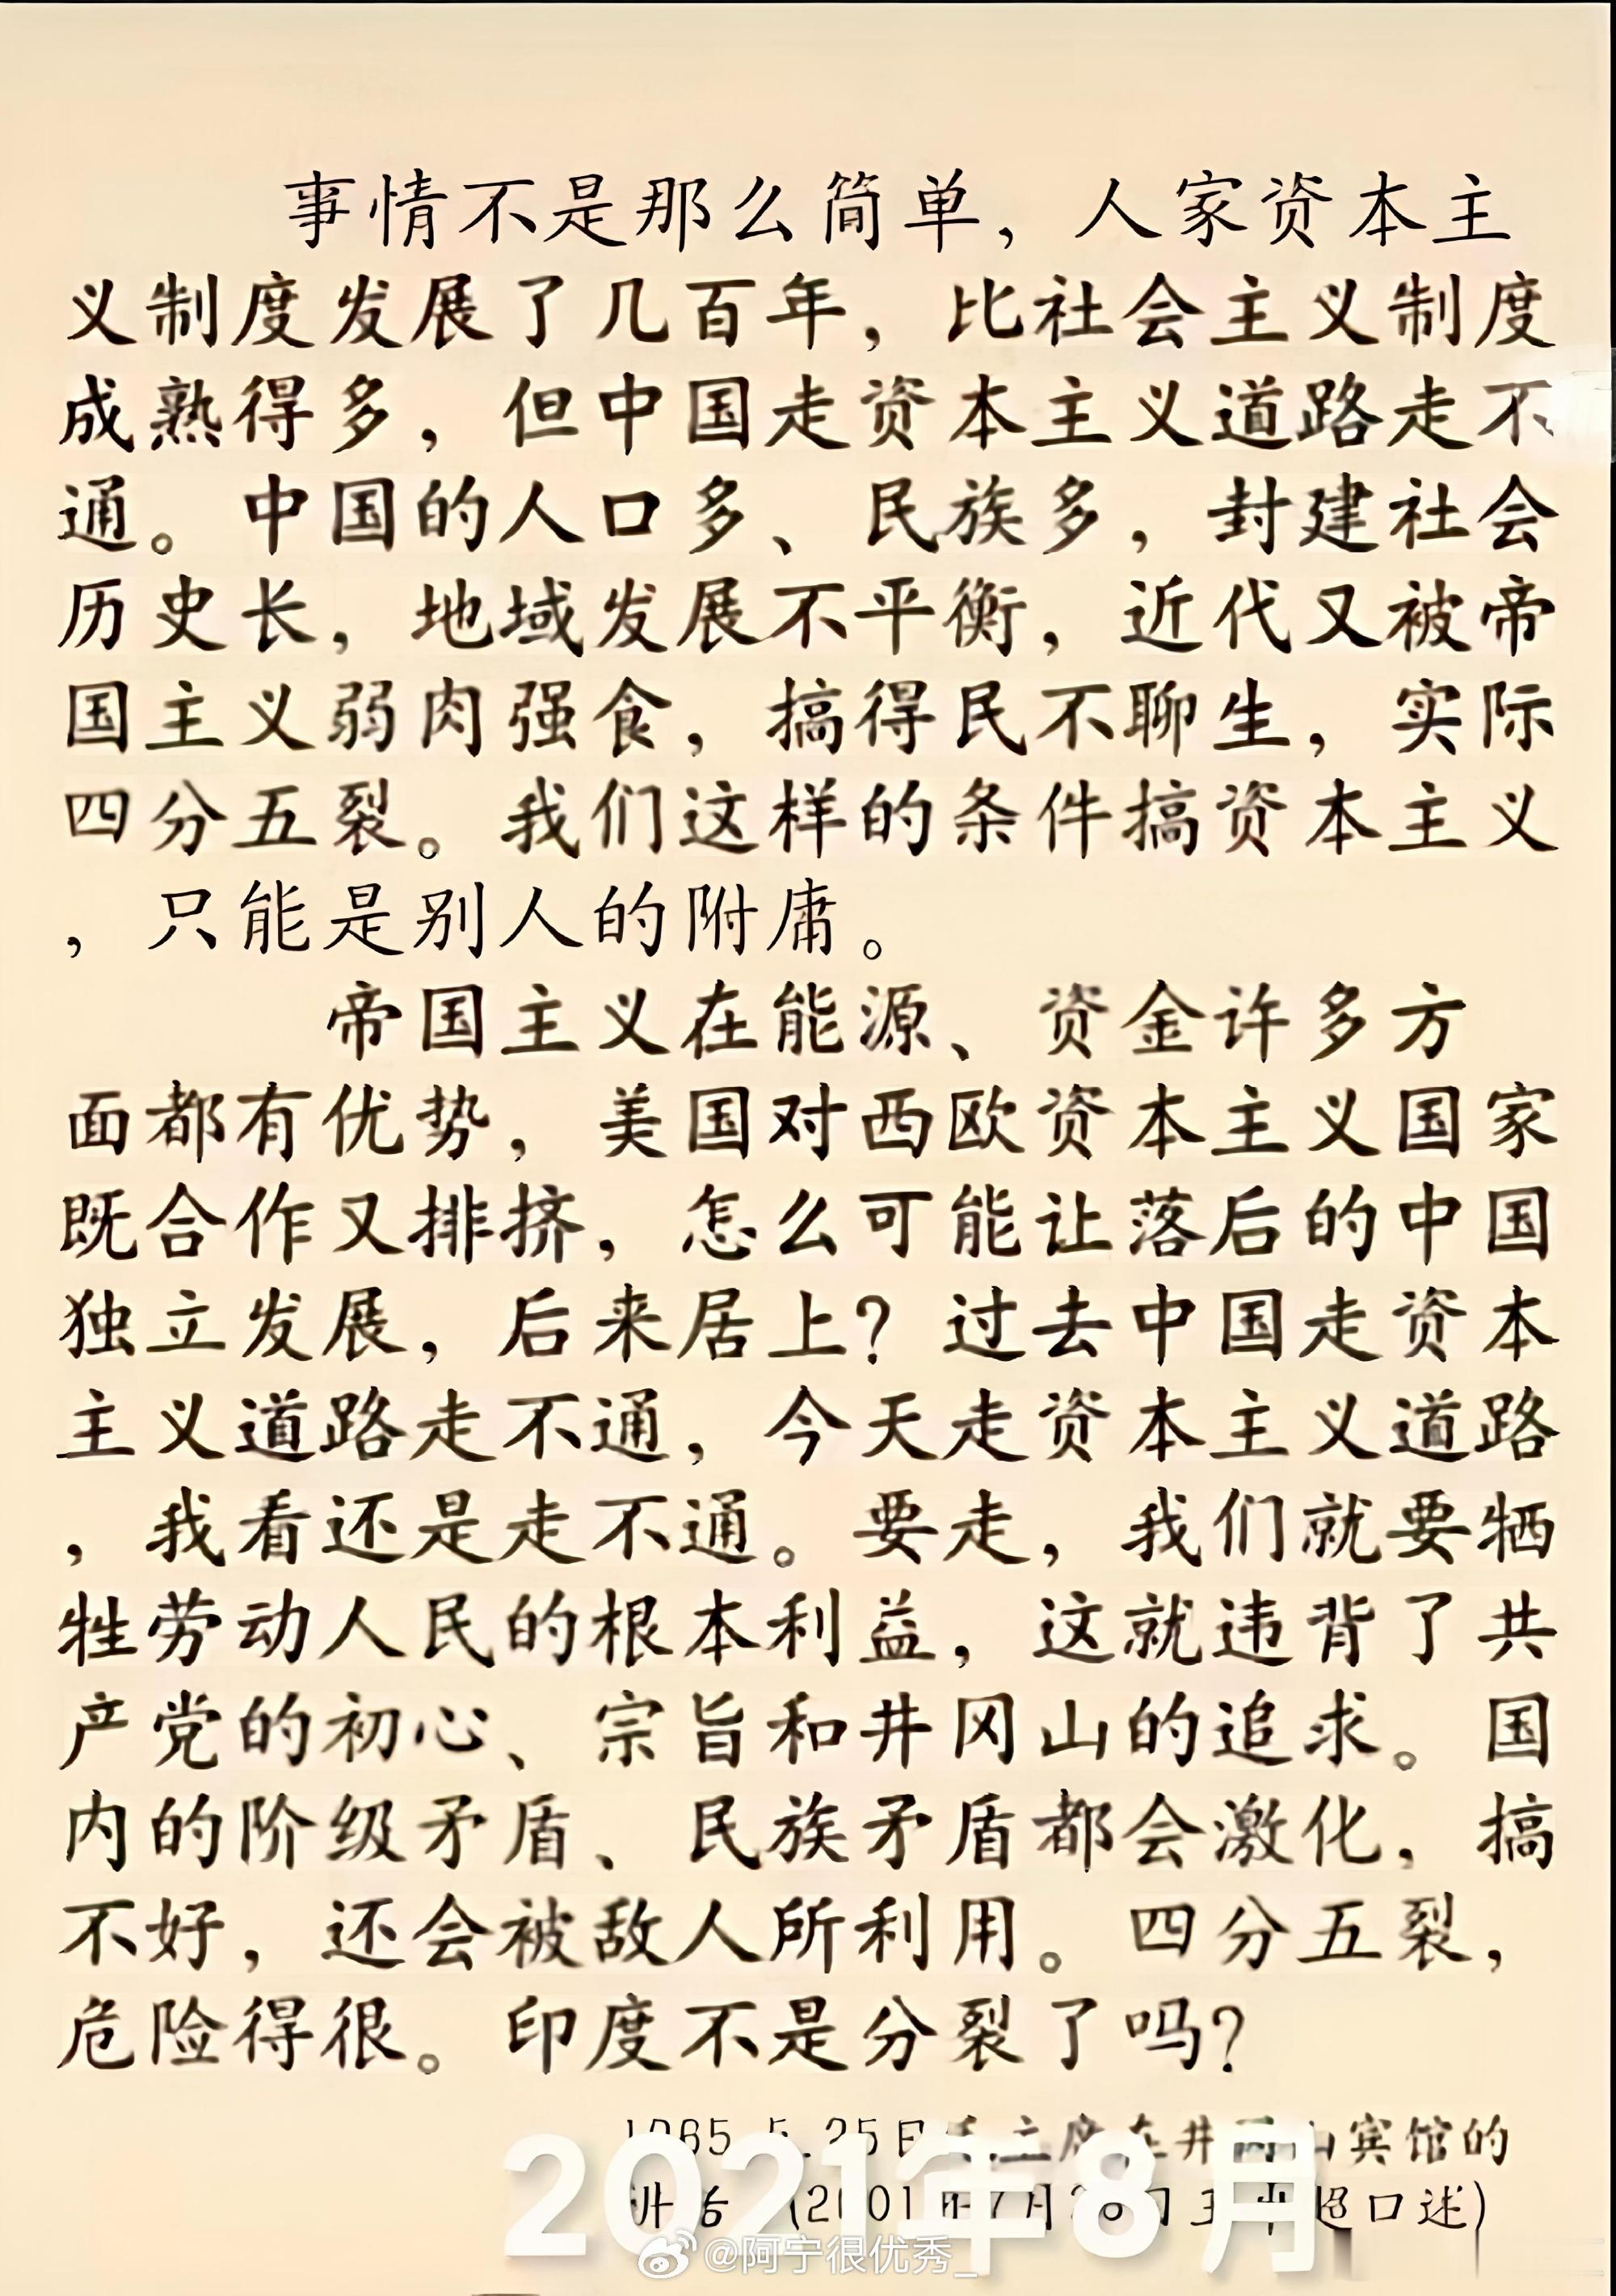 事情不是那么简单，人家资本主
义制度发展了几百年，比社会主义制度
成熟得多，但中国走资本主义道路走不
通。中国的人口多、民族多，封建社会
历史长，地域发展不平衡，近代又被帝
国主义弱肉强食，搞得民不聊生，实际
四分五裂。我们这样的条件搞资本主义
，只能是别人的附庸。
帝国主义在能源、资金许多方
面都有优势，美国对西欧资本主义国家
既合作又排挤，怎么可能让落后的中国
独立发展，后来居上？过去中国走资本
主义道路走不通，今天走资本主义道路
，我看还是走不通。要走，我们就要牺
牲劳动人民的根本利益，这就违背了共
产党的初心、宗旨和井冈山的追求。国
内的阶级矛盾、民族矛盾都会激化，搞
不好，还会被敌人所利用。四分五裂，
危险得很。印度不是分裂了吗？
1965 5.25日 主席在井 山宾馆的
2021年8月
(2001年7月 口述)
@阿宁很优秀_